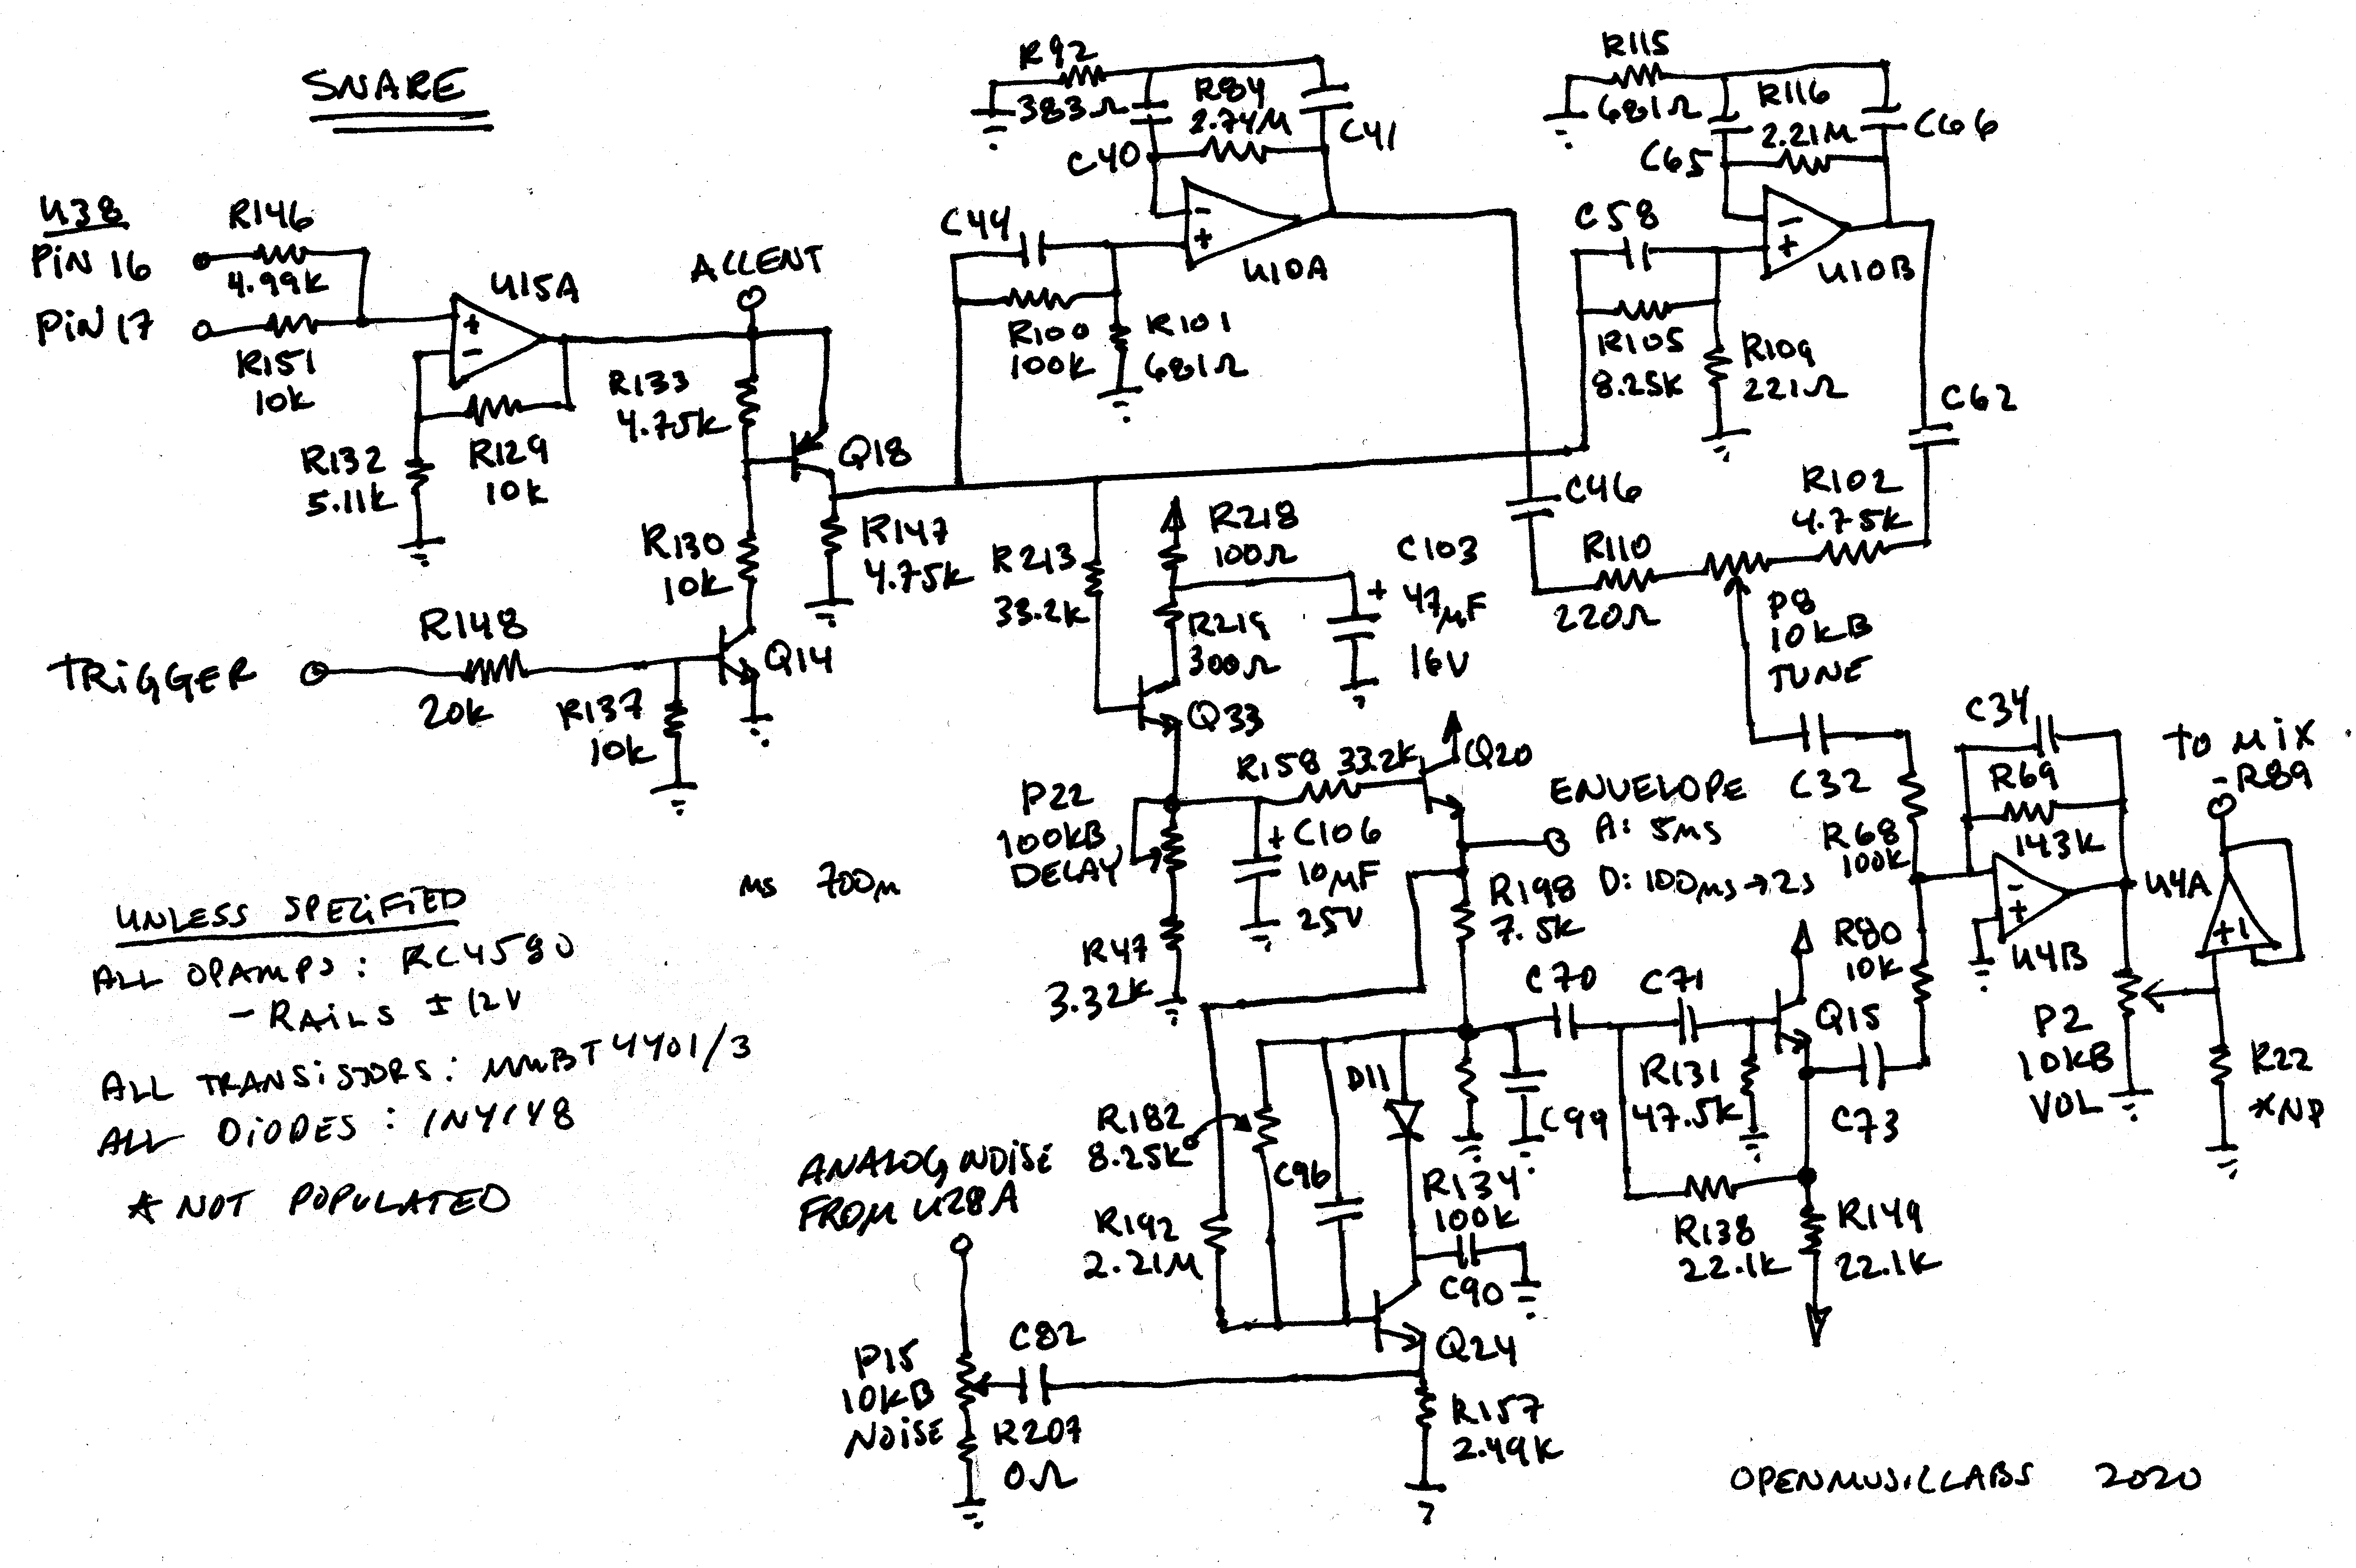 SNARE
U38
PIN 16
PIN 17
R146
4.99K
R151
10K
U15A
R132
5.11K
R129
10K
ACCENT
R133
4.75K
Q18
R130
10K
R147
4.75K
TRIGGER
R148
20K
R137
10K
Q14
R92
383Ω
C40
R84
2.74M
C41
C44
U10A
R100
100K
R101
681Ω
R115
681Ω
C65
R116
2.21M
C66
C58
U10B
R105
8.25K
R109
221Ω
C62
C46
R102
4.75K
R110
220Ω
P8
10KB
TUNE
R213
33.2K
R218
100Ω
R219
300Ω
C103
+ 47µF
16V
Q33
R158 33.2K
Q20
P22
100KB
DELAY
+ C106
10µF
25V
R47
3.32K
ENVELOPE
A: 5ms
D: 100ms→2s
R198
7.5K
C32
R68
100K
C34
R69
143K
U4B
U4A
TO MIX
-R89
+1
P2
10KB
VOL
R22
*NP
R80
10K
C70
C71
Q15
R131
47.5K
C73
C99
D11
R182
8.25K
C96
R134
100K
C90
R192
2.21M
R138
22.1K
R149
22.1K
Q24
R157
2.49K
ANALOG NOISE
FROM U28A
P15
10KB
NOISE
C82
R207
0Ω
ms 700m
UNLESS SPECIFIED
ALL OPAMPS: RC4580
- RAILS ±12V
ALL TRANSISTORS: MMBT4401/3
ALL DIODES: 1N4148
* NOT POPULATED
OPENMUSICLABS 2020